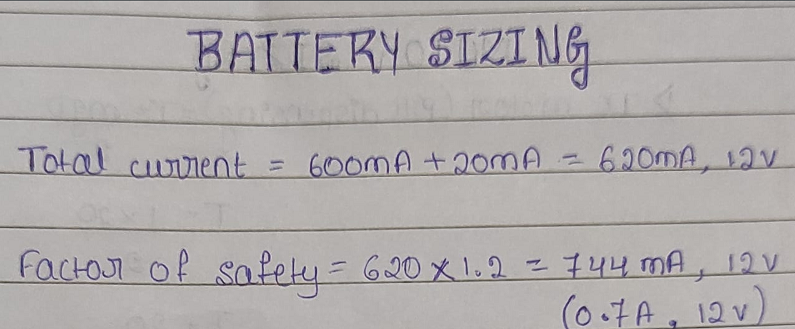 BATTERY SIZING
Total current = 600mA + 20mA = 620mA, 12v
Factor of safety = 620 x 1.2 = 744 mA, 12v
(0.7A, 12v)